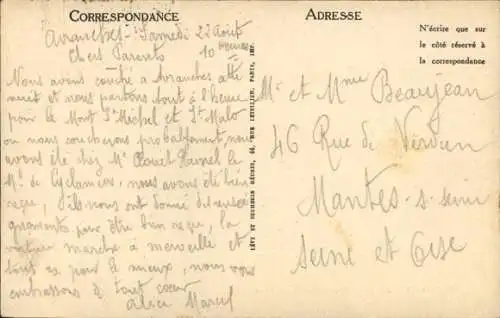 CORRESPONDANCE
Avranches - Samedi 22 Août
Chers Parents 10 heures
Nous avons couché à Avranches cette
nuit et nous partons tout à l'heure
pour le Mont St Michel et St Malo
ou nous coucherons probablement nous
avons été chez Mr le
Md de Cyclamens, nous avons été bien
reçu, ils nous ont donné
pour être bien reçu, la
voiture marche à merveille et
tout va pour le mieux, nous vous
embrassons de tout coeur
Alice Marcel
LÉVY ET NEURDEIN RÉUNIS, 44, RUE LETELLIER, PARIS, IMP.
ADRESSE
N'écrire que sur
le côté réservé à
la correspondance
Mr et Mme Beaujean
46 Rue de Verdun
Mantes s. Seine
Seine et Oise